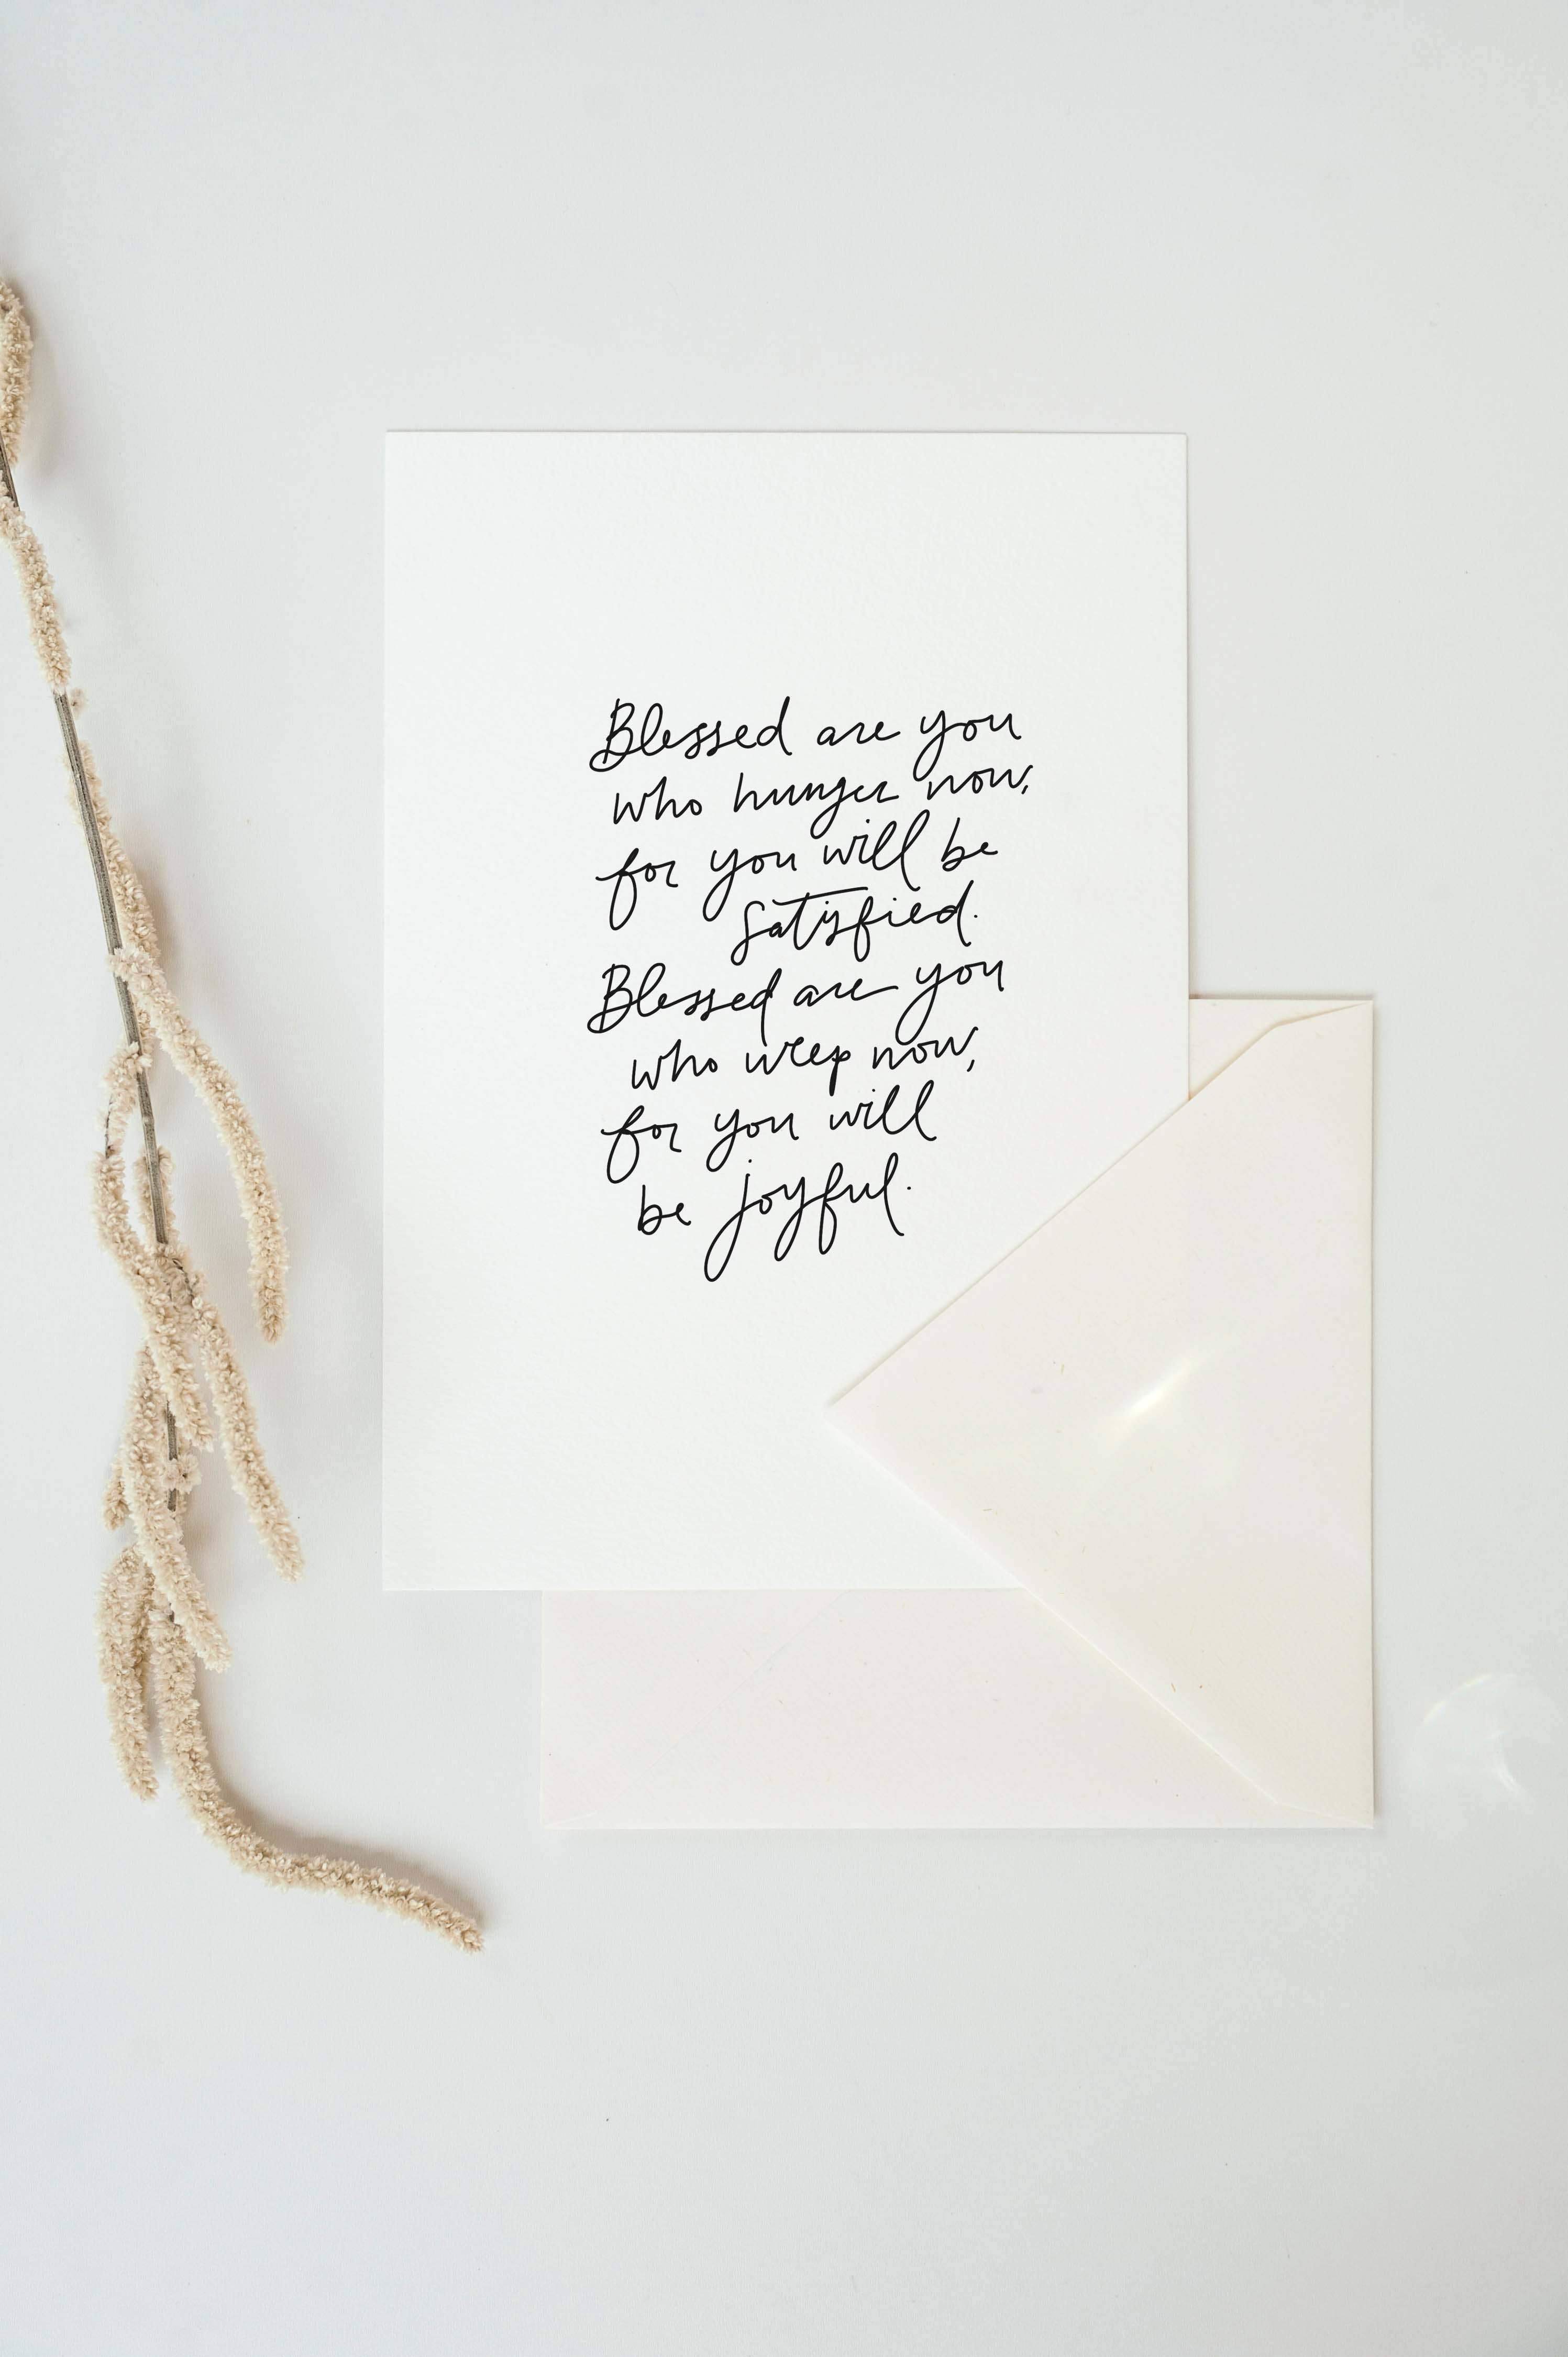 Blessed are you
who hunger now,
for you will be
satisfied.
Blessed are you
who weep now,
for you will
be joyful.